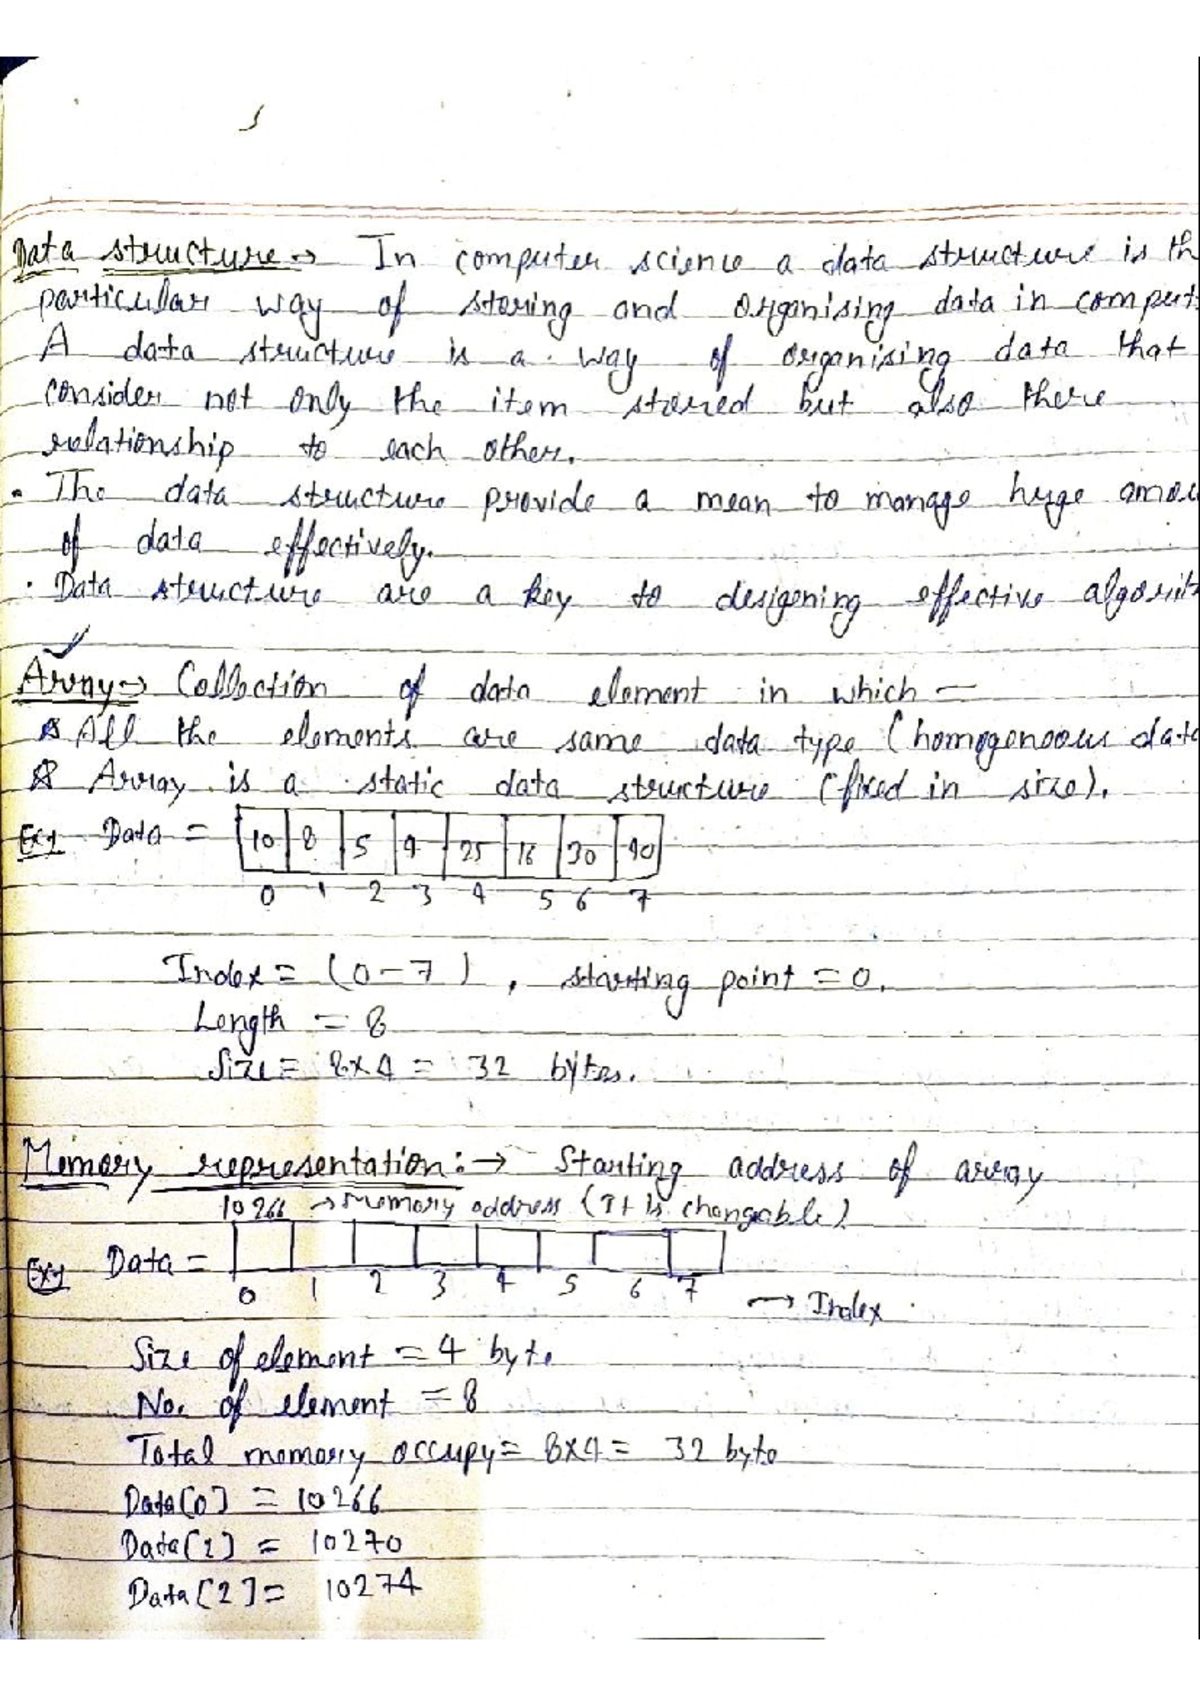 Data structure → In computer science a data structure is th
particular way of storing and organising data in comput
A data structure is a way of organising data that
consider not only the item stored but also there
relationship to each other.
• The data structure provide a mean to manage huge amou
of data effectively.
• Data structure are a key to designing effective algorit
Array → Collection of data element in which —
All the elements are same data type (homogenoous data
Array is a static data structure (fixed in size).
Ex1 Data = 10 8 5 9 25 16 30 40
0 1 2 3 4 5 6 7
Index = (0-7), starting point = 0.
Length = 8
Size = 8×4 = 32 bytes.
Memory representation :→ Starting address of array
10266 → Memory address (It is changable)
Ex1 Data =
0 1 2 3 4 5 6 7 → Index
Size of element = 4 byte
No. of element = 8
Total memory occupy = 8×4 = 32 byte
Data[0] = 10266
Data[1] = 10270
Data[2] = 10274